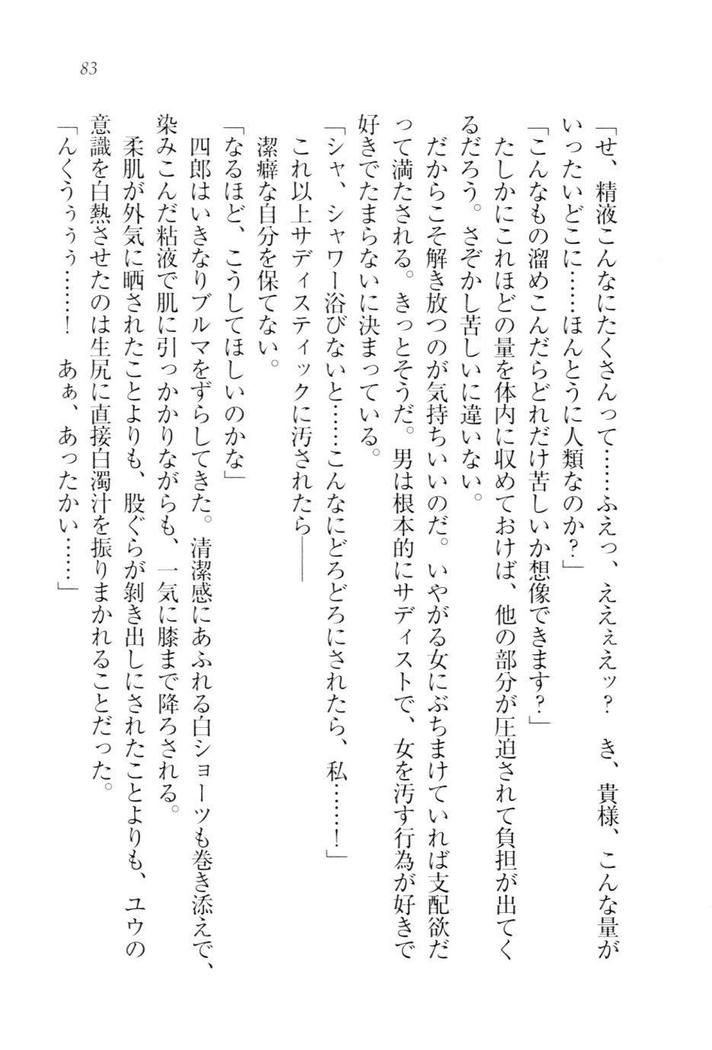 83
「せ、精液こんなにたくさんって……ふえっ、ええぇえッ？　き、貴様、こんな量が
いったいどこに……ほんとうに人類なのか？」
「こんなもの溜めこんだらどれだけ苦しいか想像できます？」
たしかにこれほどの量を体内に収めておけば、他の部分が圧迫されて負担が出てく
るだろう。さぞかし苦しいに違いない。
だからこそ解き放つのが気持ちいいのだ。いやがる女にぶちまけていれば支配欲だ
って満たされる。きっとそうだ。男は根本的にサディストで、女を汚す行為が好きで
好きでたまらないに決まっている。
「シャ、シャワー浴びないと……こんなにどろどろにされたら、私……！」
これ以上サディスティックに汚されたら――
潔癖な自分を保てない。
「なるほど、こうしてほしいのかな」
四郎はいきなりブルマをずらしてきた。清潔感にあふれる白ショーツも巻き添えで、
染みこんだ粘液で肌に引っかかりながらも、一気に膝まで降ろされる。
柔肌が外気に晒されたことよりも、股ぐらが剝き出しにされたことよりも、ユウの
意識を白熱させたのは生尻に直接白濁汁を振りまかれることだった。
「んくうぅぅぅ……！　あぁ、あったかい……」